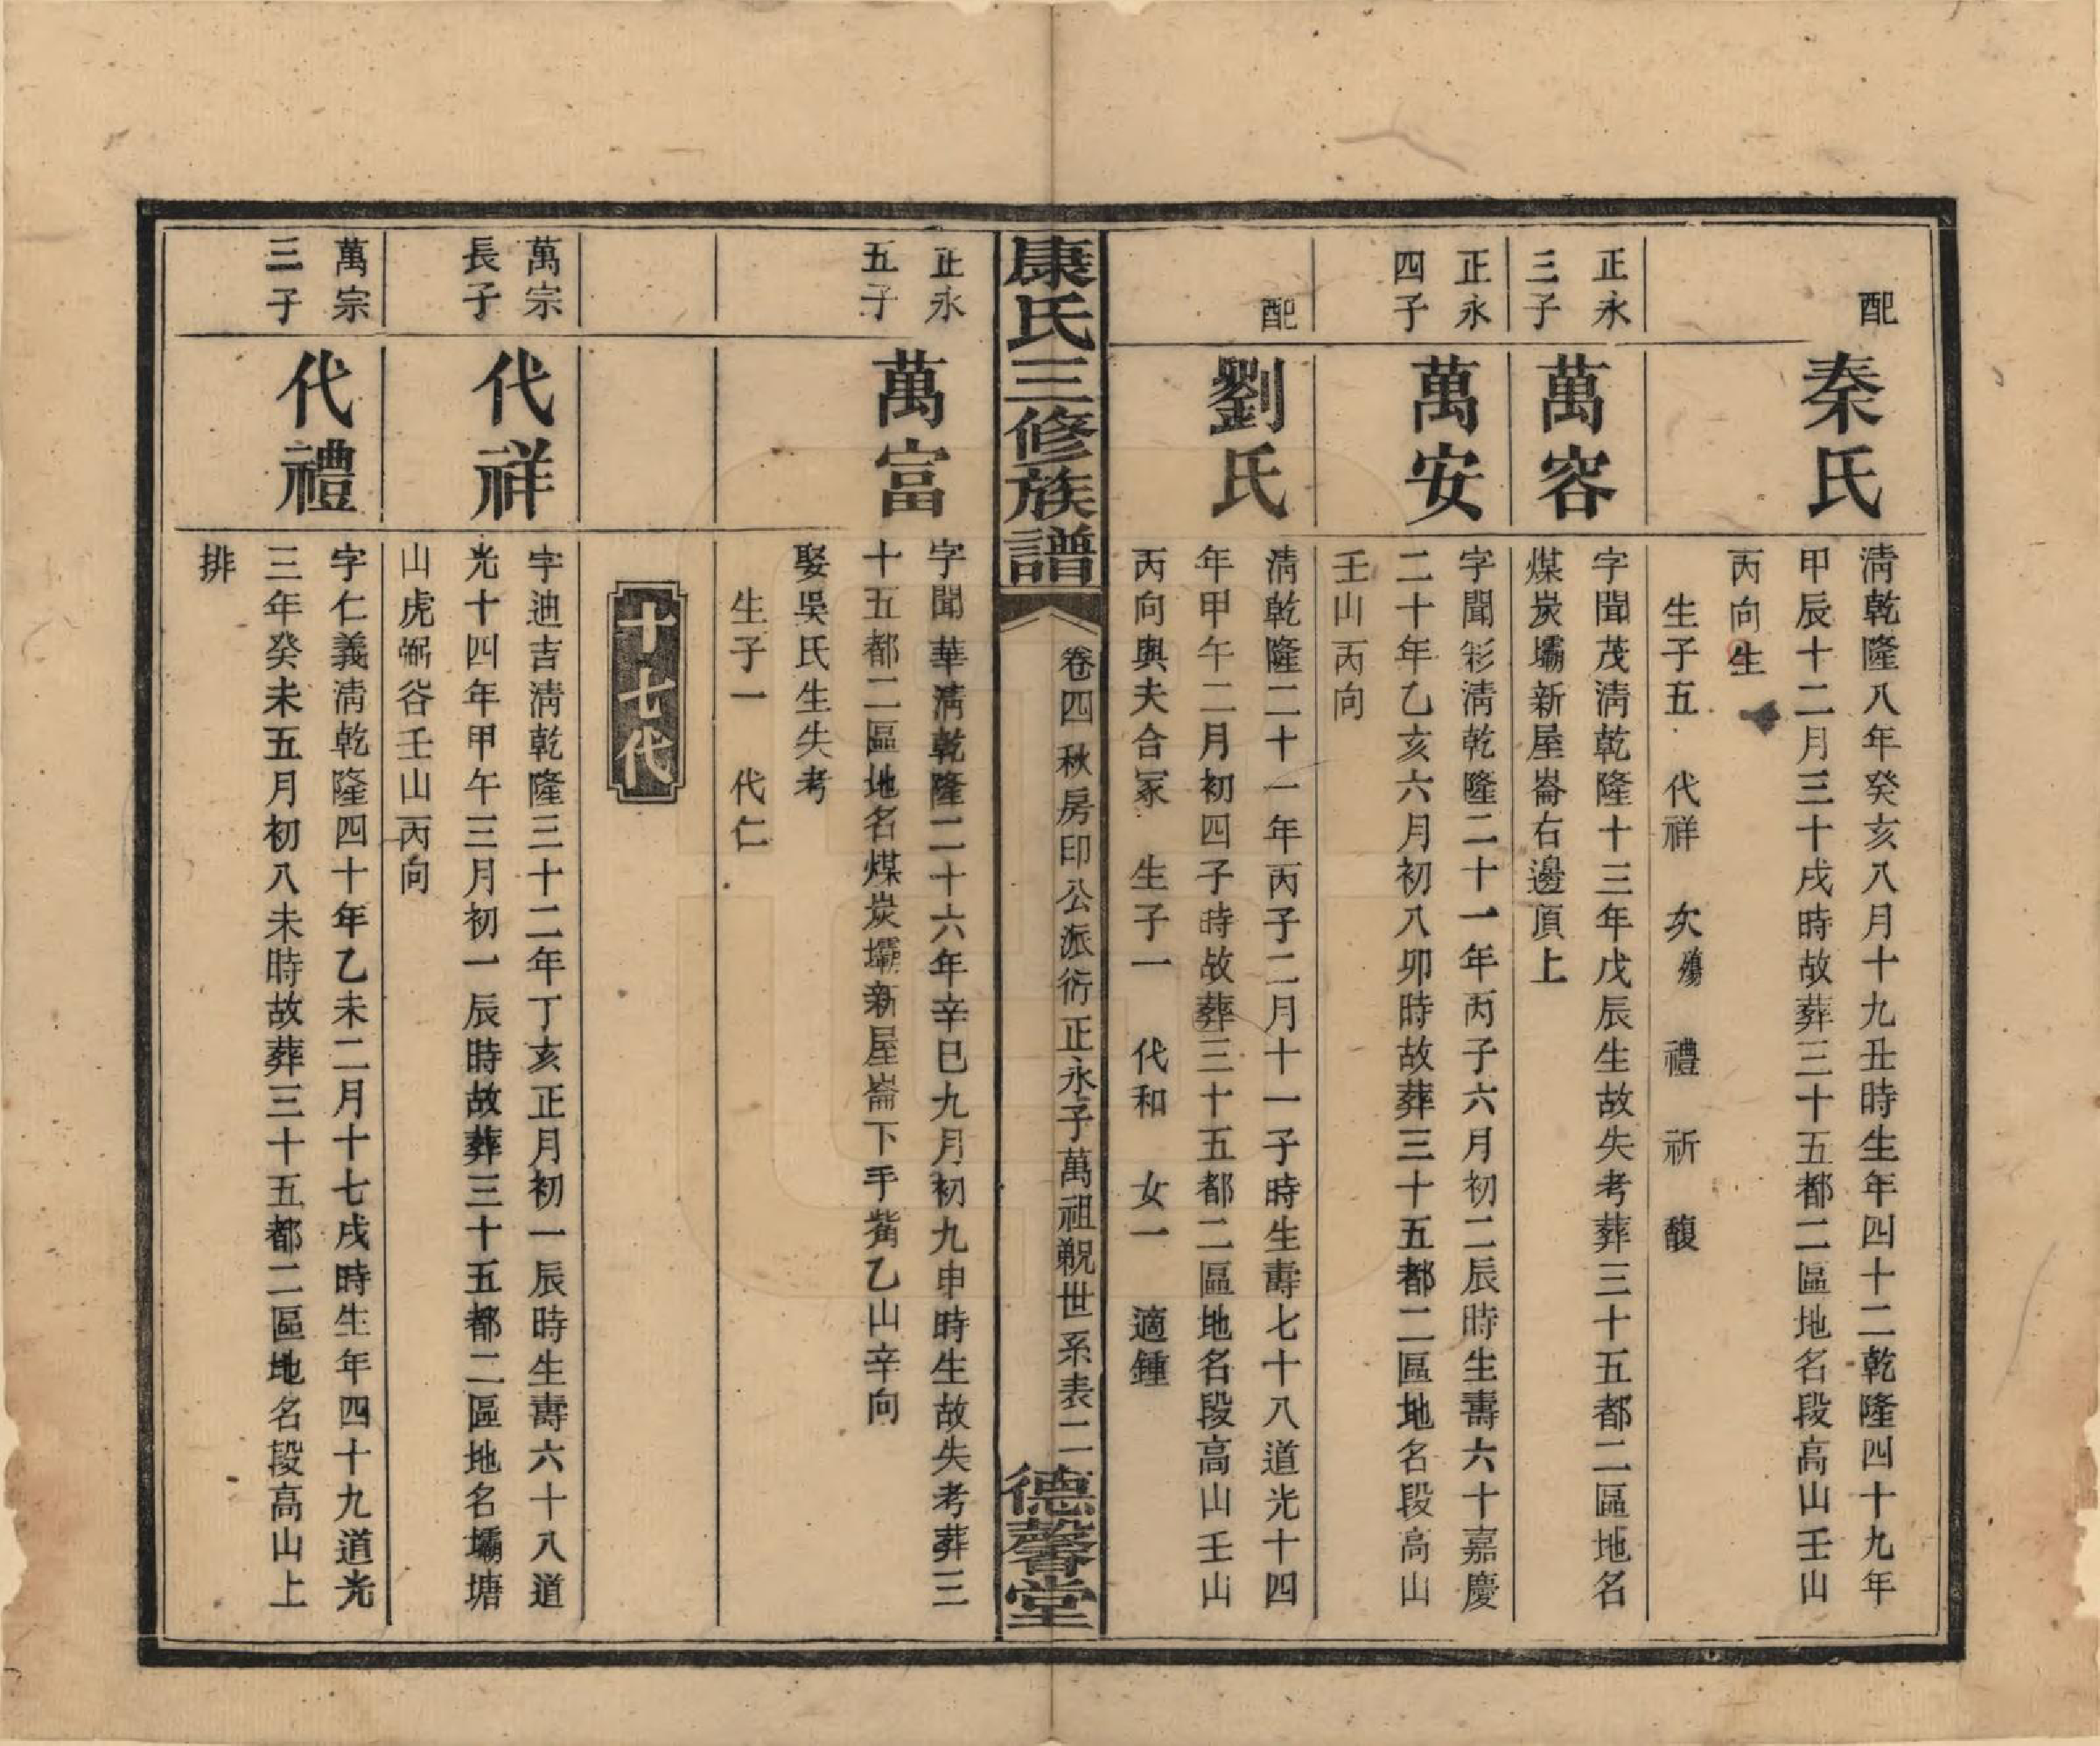 配
秦氏
淸乾隆八年癸亥八月十九丑時生年四十二乾隆四十九年
甲辰十二月三十戌時故葬三十五都二區地名段高山壬山
丙向生
生子五　代祥　次殤　禮　祈　馥
正永
三子
萬容
字聞茂淸乾隆十三年戊辰生故失考葬三十五都二區地名
煤炭壩新屋崙右邊頂上
正永
四子
萬安
字聞彩淸乾隆二十一年丙子六月初二辰時生壽六十嘉慶
二十年乙亥六月初八卯時故葬三十五都二區地名段高山
壬山丙向
配
劉氏
淸乾隆二十一年丙子二月十一子時生壽七十八道光十四
年甲午二月初四子時故葬三十五都二區地名段高山壬山
丙向與夫合冢　生子一　代和　女一　適鍾
康氏三修族譜
卷四秋房印公派衍正永子萬祖覡世系表二
德馨堂
正永
五子
萬富
字聞華淸乾隆二十六年辛巳九月初九申時生故失考葬三
十五都二區地名煤炭壩新屋崙下手觜乙山辛向
娶吳氏生失考
生子一　代仁
十七代
萬宗
長子
代祥
字迪吉淸乾隆三十二年丁亥正月初一辰時生壽六十八道
光十四年甲午三月初一辰時故葬三十五都二區地名壩塘
山虎形谷壬山丙向
萬宗
三子
代禮
字仁義淸乾隆四十年乙未二月十七戌時生年四十九道光
三年癸未五月初八未時故葬三十五都二區地名段高山上
排